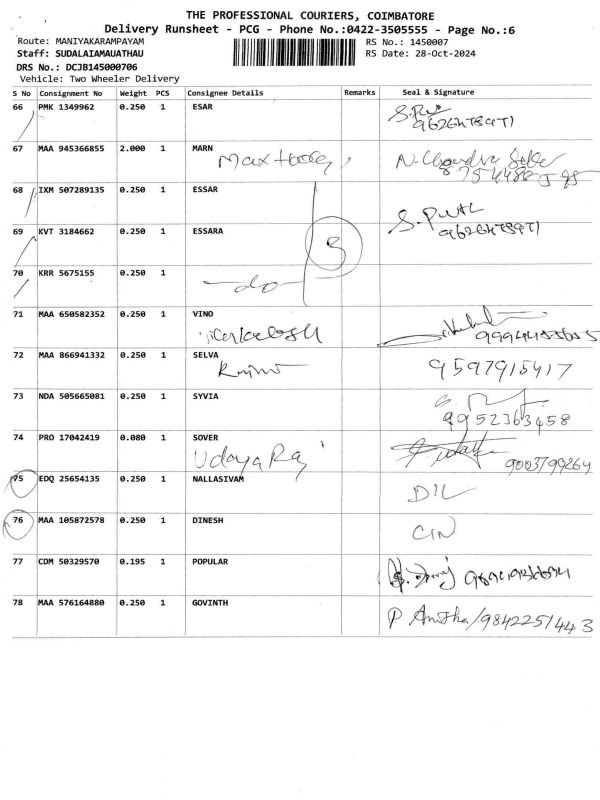 THE PROFESSIONAL COURIERS, COIMBATORE
Delivery Runsheet - PCG - Phone No.:0422-3505555 - Page No.:6
Route: MANIYAKARAMPAYAM
RS No.: 1450007
Staff: SUDALAIAMAUATHAU
RS Date: 28-Oct-2024
DRS No.: DCJB145000706
Vehicle: Two Wheeler Delivery
S No Consignment No Weight PCS Consignee Details Remarks Seal & Signature
66 PMK 1349962 0.250 1 ESAR
67 MAA 945366855 2.000 1 MARN
68 IXM 507289135 0.250 1 ESSAR
69 KVT 3184662 0.250 1 ESSARA
3
70 KRR 5675155 0.250 1
-do-
71 MAA 650582352 0.250 1 VINO
72 MAA 866941332 0.250 1 SELVA
9597915417
73 NDA 505665081 0.250 1 SYVIA
9952363458
74 PRO 17042419 0.080 1 SOVER
Udaya Raj
9003799264
75 EDQ 25654135 0.250 1 NALLASIVAM
DIL
76 MAA 105872578 0.250 1 DINESH
CIN
77 CDM 50329570 0.195 1 POPULAR
78 MAA 576164880 0.250 1 GOVINTH
P Anitha/9842251443